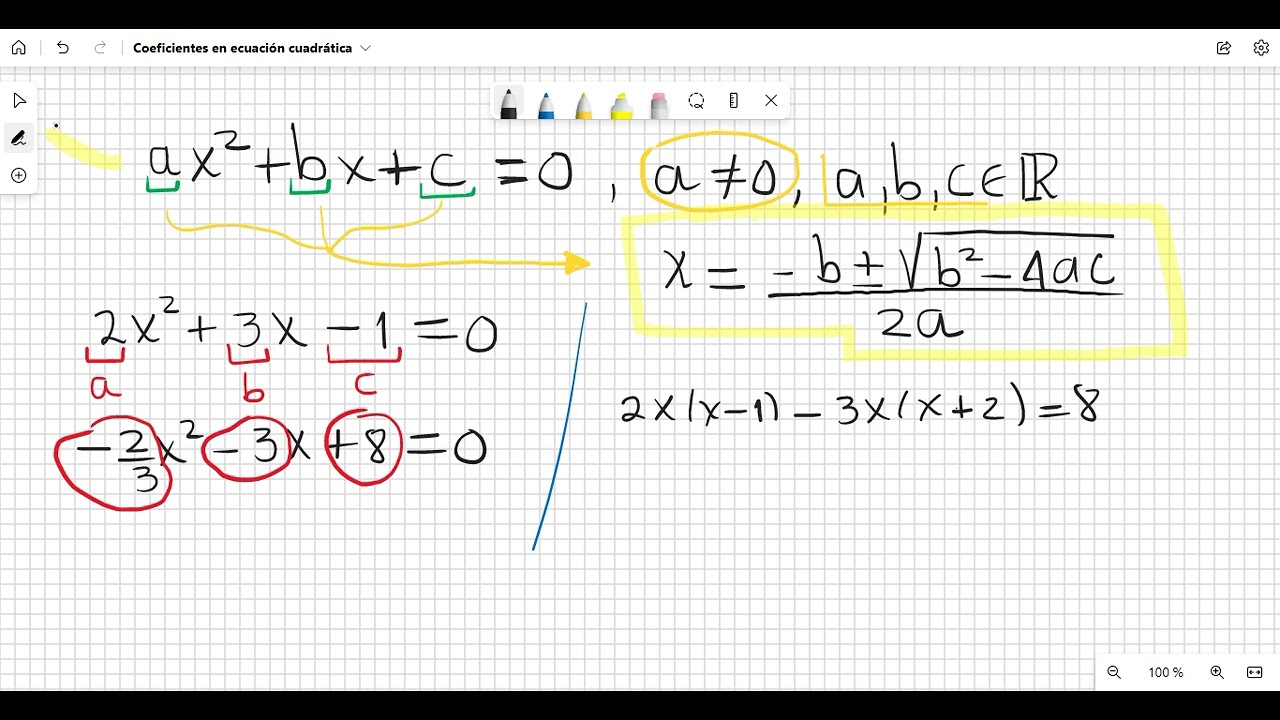 Coeficientes en ecuación cuadrática
ax² + bx + c = 0, a ≠ 0, a, b, c ∈ ℝ
x = -b ± √b² - 4ac
2a
2x² + 3x - 1 = 0
a b c
2x(x-1) - 3x(x+2) = 8
-2/3x² - 3x + 8 = 0
100 %